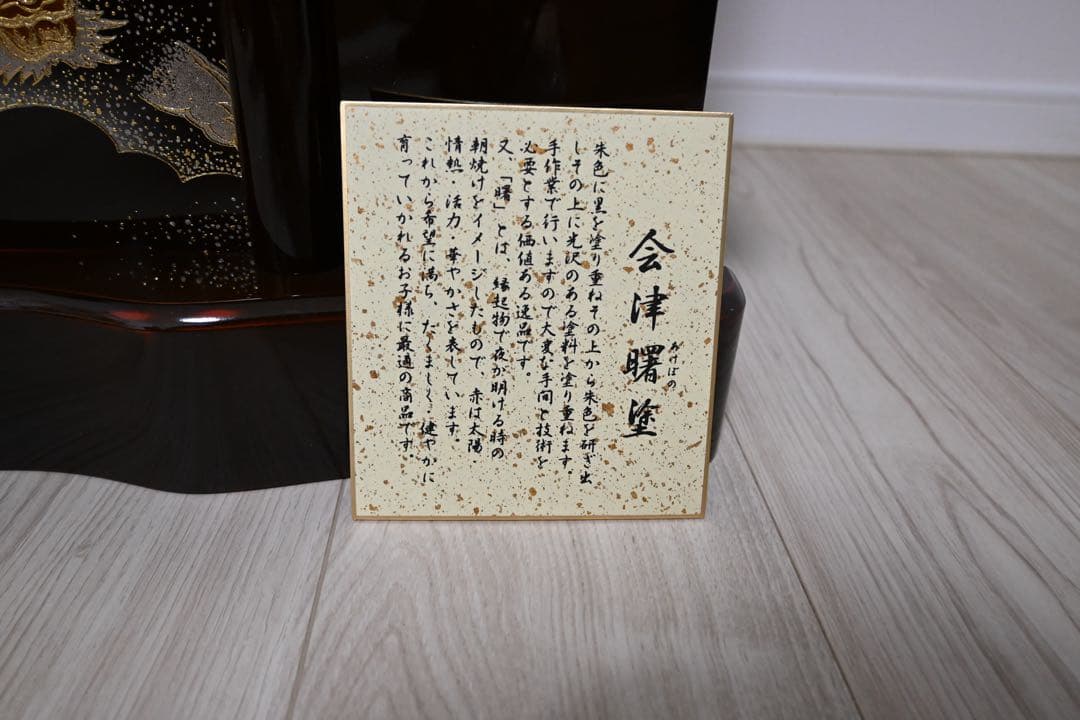 会津曙塗
あけぼの
朱色に黒を塗り重ねその上から朱色を研ぎ出
しその上に光沢のある塗料を塗り重ねます。
手作業で行いますので大変な手間と技術を
必要とする価値ある逸品です。
又、「曙」とは、縁起物で夜が明ける時の
朝焼けをイメージしたもので、赤は太陽
情熱・活力・華やかさを表しています。
これから希望に満ち、たくましく、健やかに
育っていかれるお子様に最適の商品です。